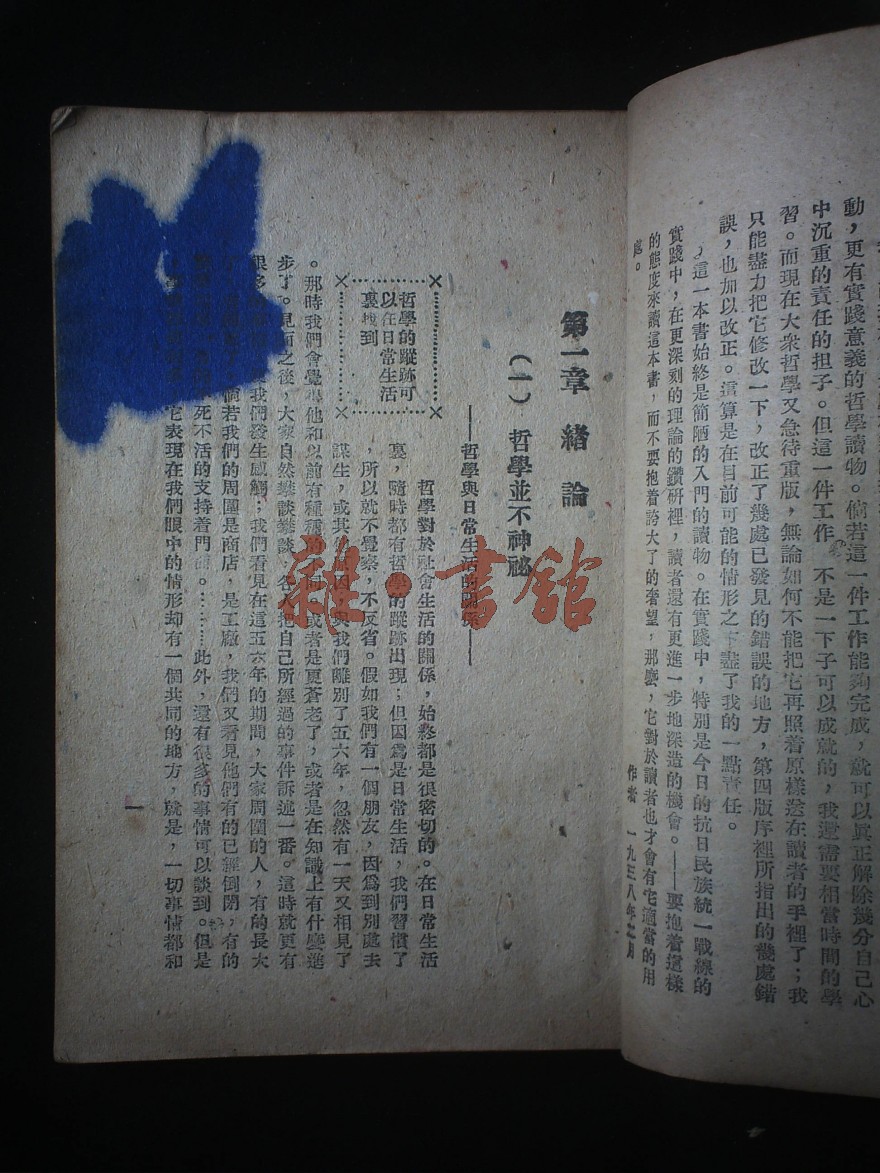 動，更有實踐意義的哲學讀物。倘若這一件工作能夠完成，就可以眞正解除幾分自己心
中沉重的責任的担子。但這一件工作，不是一下子可以成就的，我還需要相當時間的學
習。而現在大衆哲學又急待重版，無論如何不能把它再照着原樣送在讀者的手裡了；我
只能盡力把它修改一下，改正了幾處已發見的錯誤的地方，第四版序裡所指出的幾處錯
誤，也加以改正。這算是在目前可能的情形之下盡了我的一點責任。
這一本書始終是簡陋的入門的讀物。在實踐中，特別是今日的抗日民族統一戰線的
實踐中，在更深刻的理論的鑽研裡，讀者還有更進一步地深造的機會。——要抱着這樣
的態度來讀這本書，而不要抱着誇大了的奢望，那麼，它對於讀者也才會有它適當的用
處。
作者 一九三八年 月
第一章 緒論
（一）哲學並不神祕
——哲學與日常生活的關係——
哲學的蹤跡可
以在日常生活
裏找到
哲學對於社會生活的關係，始終都是很密切的。在日常生活
裏，隨時都有哲學的蹤跡出現；但因爲是日常生活，我們習慣了
，所以就不覺察，不反省。假如我們有一個朋友，因爲到別處去
謀生，或其 原因，與我們離別了五六年，忽然有一天又相見了
。那時我們會覺得他和以前有種種的不同。或者是更蒼老了，或者是在知識上有什麼進
步了。見面之後，大家自然談談談談，各人把自己所經過的事件訴述一番。這時就更有
很多 我們發生感觸；我們看見在這五六年的期間，大家周圍的人，有的長大
倘若我們的周圍是商店，是工廠，我們又看見他們有的已經倒閉，有的
死不活的支持着門面。……此外，還有很多的事情可以談到。但是
它表現在我們眼中的情形却有一個共同的地方，就是，一切事情都和
一
雜·書館